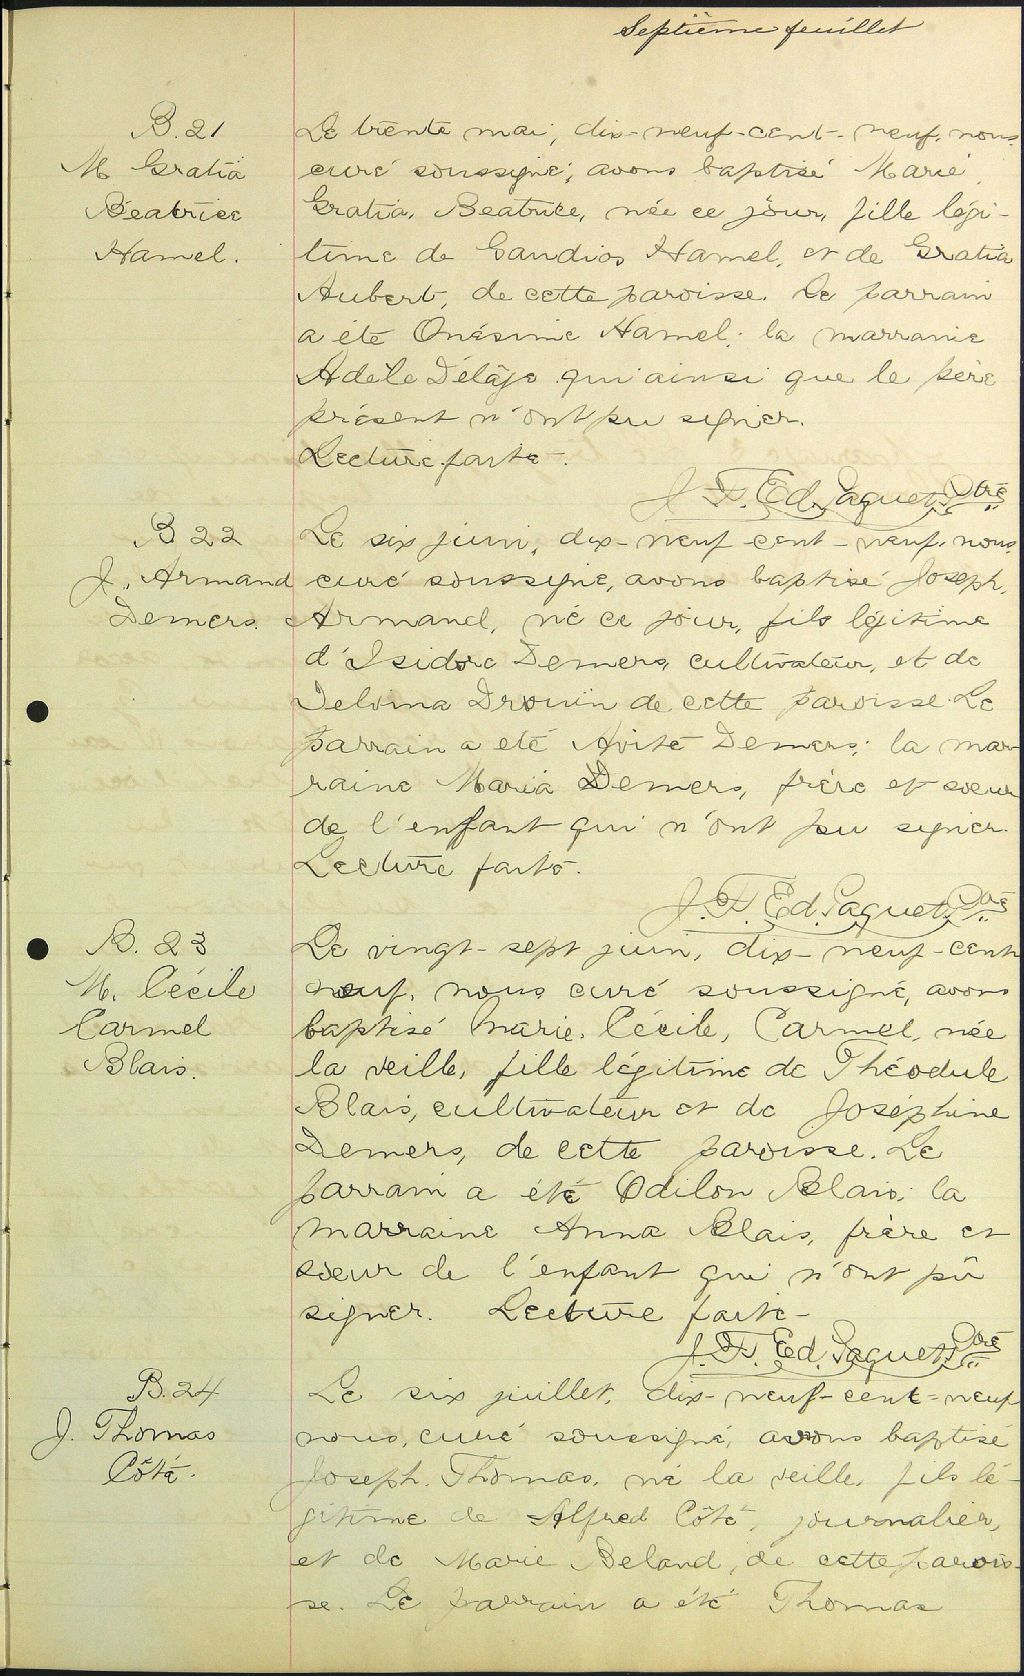 Septième feuillet
B. 21
M Gratia
Béatrice
Hamel.
Le trente mai, dix-neuf-cent-neuf, nous
curé soussigné, avons baptisé Marie
Gratia, Beatrice, née ce jour, fille légi-
time de Gaudios Hamel, et de Gratia
Aubert, de cette paroisse. Le parrain
a été Onésime Hamel; la marraine
Adèle Délâge qui ainsi que le père
présent n'ont pu signer.
Lecture faite.
J. F. Ed. Paquet, Ptre
B 22
J. Armand
Demers.
Le six juin, dix-neuf cent-neuf, nous,
curé soussigné, avons baptisé Joseph,
Armand, né ce jour, fils légitime
d'Isidore Demers, cultivateur, et de
Delvina Drouin de cette paroisse. Le
parrain a eté Avite Demers; la mar-
raine Maria Demers, frère et soeur
de l'enfant qui n'ont pu signer.
Lecture faite.
J. F. Ed. Paquet, Ptre
B. 23
M. Cécile
Carmel
Blais.
Le vingt-sept juin, dix-neuf-cent
neuf, nous curé soussigné, avons
baptisé Marie, Cécile, Carmel, née
la veille, fille légitime de Théodule
Blais, cultivateur et de Joséphine
Demers, de cette paroisse. Le
parrain a été Odilon Blais; la
marraine Anna Blais, frère et
soeur de l'enfant qui n'ont pû
signer. Lecture faite-
J. F. Ed. Paquet, Ptre
B. 24
J. Thomas
Côté.
Le six juillet, dix-neuf-cent-neuf
nous, curé soussigné, avons baptisé
Joseph, Thomas, né la veille, fils lé-
gitime de Alfred Côté, journalier,
et de Marie Beland, de cette parois-
se. Le parrain a été Thomas